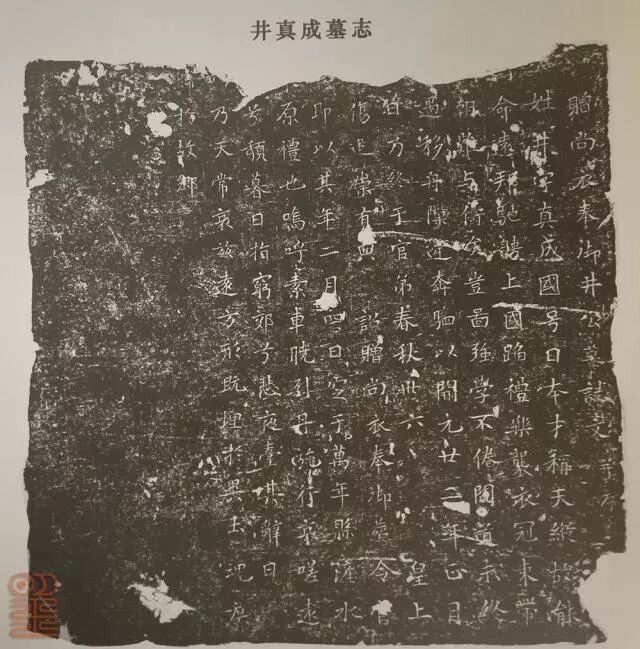 井真成墓志
贈尚衣奉御井公墓誌文并序
姓井字真成國号日本才稱天縱故能
命遠邦馳騁上國蹈禮樂襲衣冠束帶
朝難与儔矣豈圖強學不倦問道未終
遇移舟隙逢奔駟以開元廿二年正月
日乃終于官弟春秋卅六 皇上
傷追崇有典 詔贈尚衣奉御葬令官
即以其年二月四日窆于萬年縣滻水
原禮也嗚呼素車曉引丹旐行哀嗟遠
兮頹暮日指窮郊兮悲夜臺其辭曰
乃天常哀茲遠方形既埋於異土魂庶
於故鄉